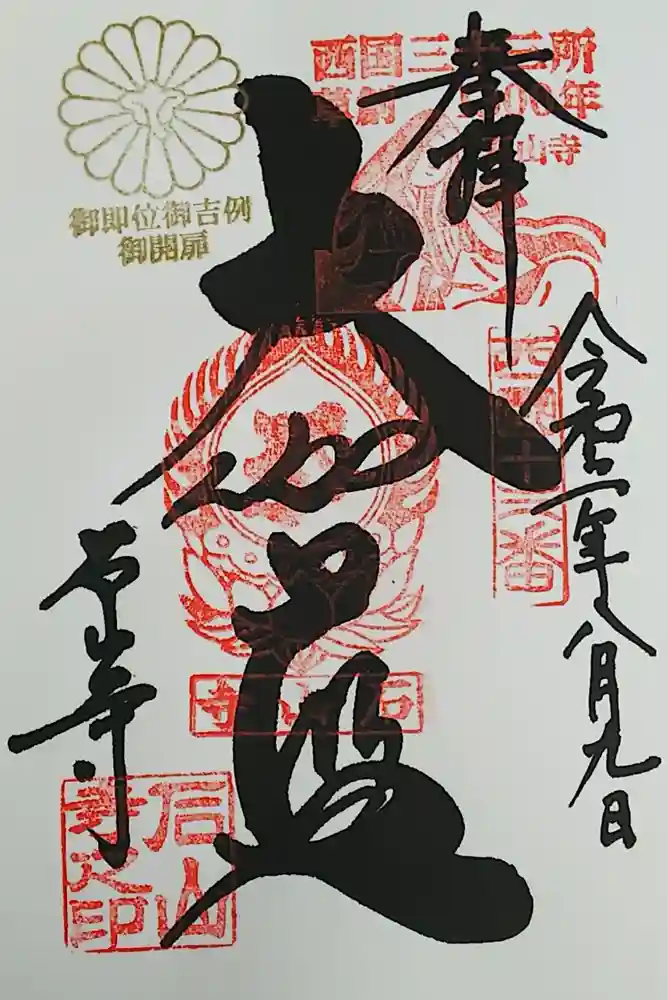 奉拝
西国三十三所
草創1300年
石山寺
西国十三番
令和二年八月九日
大伽藍
御即位御吉例
御開扉
石山寺
石山寺
石山寺之印